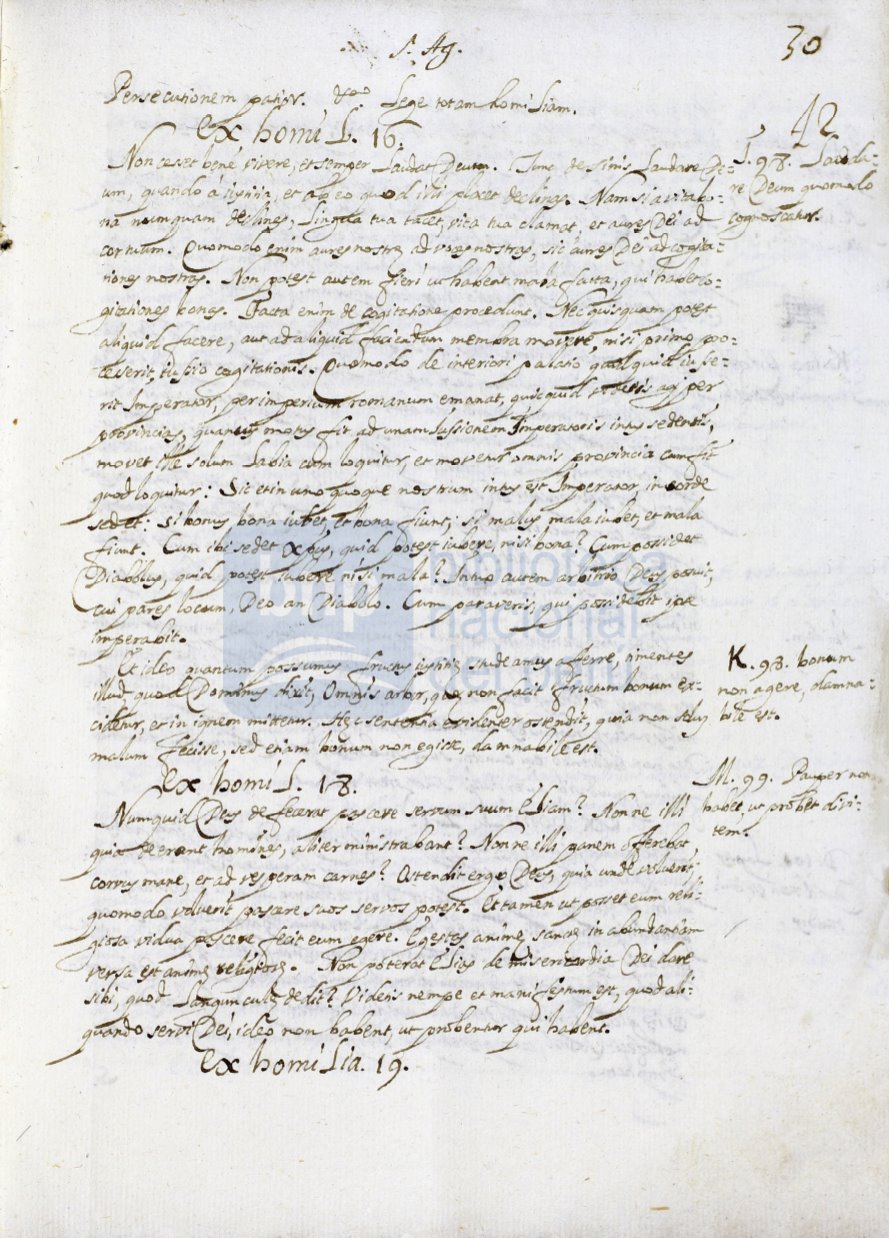 S. Ag.
30
42
Persecutionem patitur. Lege totam homiliam.
Ex homil. 16.
Non cesset bene vivere, et semper laudat Deum. Tunc desinis laudare De-
um, quando a iustitia, et ab eo quod illi placet declinas. Nam si a vita bo-
na nunquam declines, lingua tua tacet, vita tua clamat, et aures Dei ad
cor tuum. Quomodo enim aures nostrę ad voces nostras, sic aures Dei ad cogita-
tiones nostras. Non potest autem fieri ut habeat mala facta, qui habet co-
gitationes bonas. Facta enim de cogitatione procedunt. Nec quisquam potest
aliquid facere, aut ad aliquid faciendum membra movere, nisi primo prę-
cesserit iussio cogitationis. Quomodo de interiori palatio quod quid iusse-
rit Imperator, per imperium romanum emanat, quicquid videtis agi per
provincias, quantus motus fit ad unam iussionem Imperatoris intus sedentis,
movet ille solum labia cum loquitur, et movetur omnis provincia cum fit
quod loquitur: Sic et in uno quoque nostrum intus est Imperator, in corde
sedet: si bonus bona iubet, et bona fiunt; si malus mala iubet, et mala
fiunt. Cum ibi sedet Xpus, quid potest iubere, nisi bona? Cum possidet
Diabolus, quid potest iubere nisi mala? In tuo autem arbitrio Deus posuit,
cui pares locum, Deo an Diabolo. Cum paraveris, qui possidebit ipse
imperabit.
Et ideo quantum possumus fructus iustitię studeamus afferre, timentes
illud quod Dominus dixit, Omnis arbor, quę non facit fructum bonum ex-
cidetur, et in ignem mittetur. Hęc sententia evidenter ostendit, quia non solum
malum fecisse, sed etiam bonum non egisse, damnabile est.
Ex homil. 18.
Numquid Deus defecerat pascere servum suum Eliam? Nonne illi
quia deerant homines, aliter ministrabant? Nonne illi panem offerebat
corvus mane, et ad vesperam carnes? Ostendit ergo Deus, quia unde voluerit,
quomodo voluerit pascere suos servos potest. Et tamen ut posset eum reli-
giosa vidua pascere fecit eum egere. Egestas animę sanctę in abundantiam
versa est animę religiosę. Non poterat Elias de misericordia Dei dare
sibi, quod dedit? Videtis nempe et manifestum est, quod ali-
quando servi Dei, ideo non habent, ut probentur qui habent.
Ex homilia. 19.
I. 98. Lauda-
re Deum quomodo
cognoscatur.
K. 98. bonum
non agere, damna-
bile est.
M. 99. Pauper non
habet, ut probet divi-
tem.
bnp
biblioteca
nacional
del perú